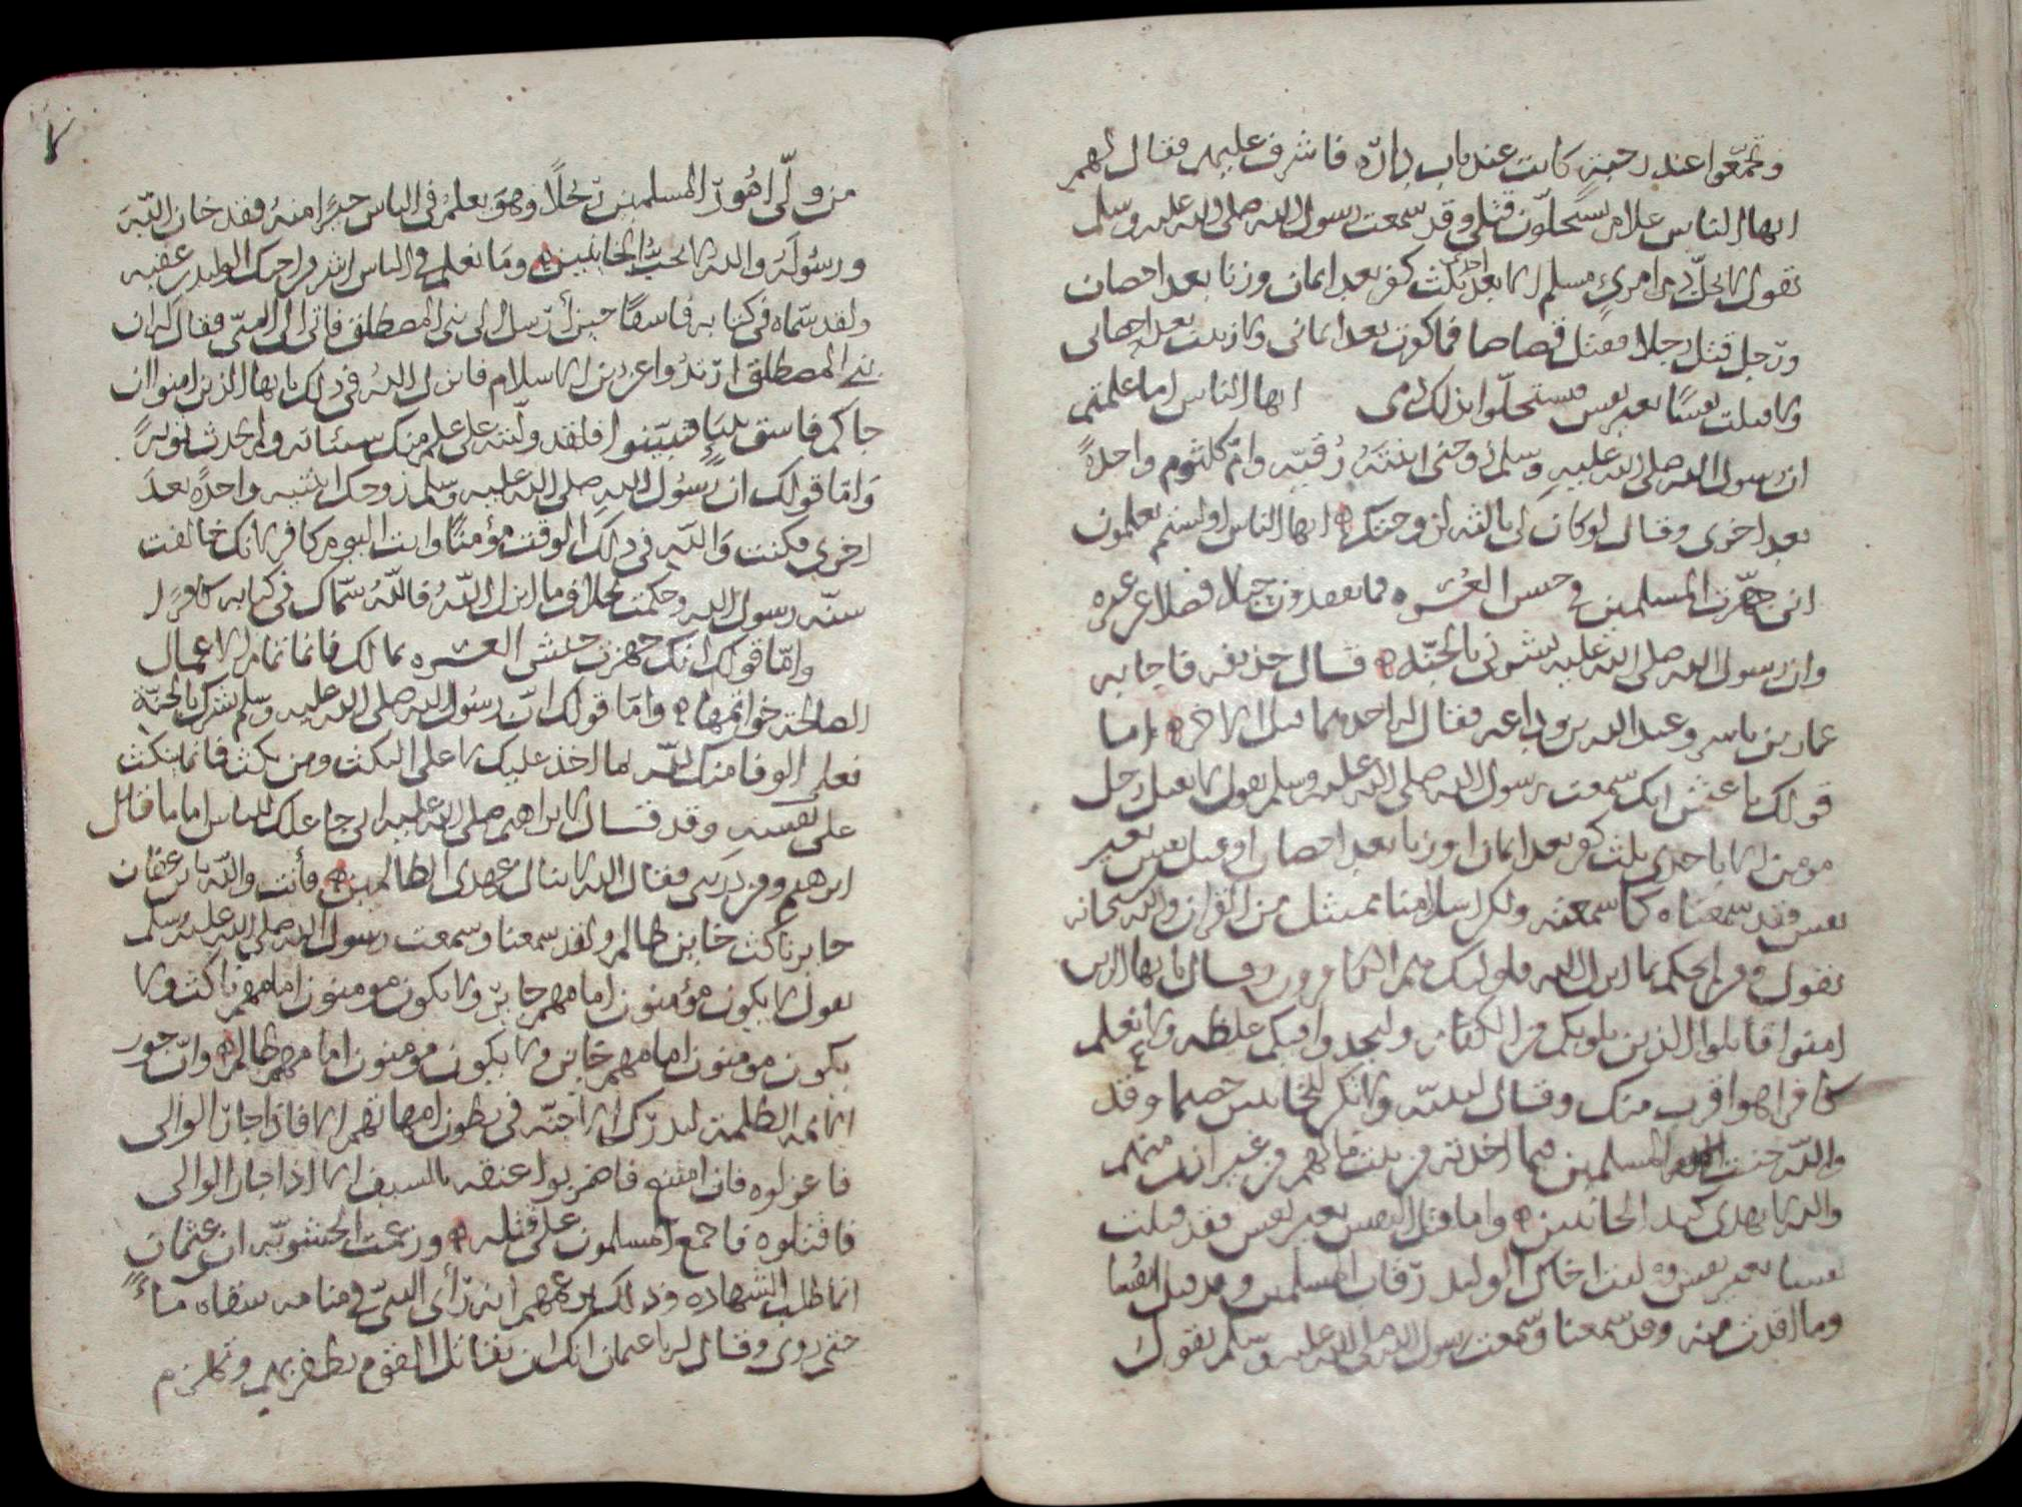 وتجمّعوا عند رحبة كانت عند باب داره فاشرف عليهم فقال لهم
ايها الناس علام تستحلّون قتلي وقد سمعت رسول الله صلى الله عليه وسلم
يقول لا يحل دم امرئ مسلم الا بعد احدى ثلث كفر بعد ايمان وزنا بعد احصان
ورجل قتل رجلا فقتل قصاصا فما كفرت بعد ايماني ولا زنيت بعد احصاني
ولا قتلت نفسًا بغير نفس فتستحلّوا بذلك دمي ايها الناس اما علمتم
ان رسول الله صلى الله عليه وسلم زوجني ابنتيه رُقيّه وام كلثوم واحدةً
بعد اخرى وقال لو كان لي ثالثه لزوجتكها ايها الناس اولستم تعلمون
اني جهّزت المسلمين في جيش العُسره فما تفقدون حبلا فضلا عن غيره
وان رسول الله صلى الله عليه بشرني بالجنّه قال حذيفه فاجابه
عمار بن ياسر وعبد الله بن وداعه فقال له احدهما قبل الاخر اما
قولك يا عثمن انك سمعت رسول الله صلى الله عليه وسلم يقول لا يقتل رجل
مومن الا باحدى ثلث كفر بعد ايمان او زنا بعد احصان او قتل نفس بغير
نفس فقد سمعناه كما سمعته ولكن اسلامنا من القران والله سبحانه
يقول ومن لم يحكم بما انزل الله فاولئك هم الكافرون وقال يا ايها الذين
امنوا قاتلوا الذين يلونكم من الكفار وليجدوا فيكم غلظه ولا نعلم
كافرا هو اقرب منك وقال لنبيّه ولا تكن للخائنين خصيما وقد
والله خنت المسلمين فيما اخذته من بيت مالهم من غير اذن منهم
والله لا يهدي كيد الخائنين واما قتل النفس بغير نفس فقد قتلت
نفسا بغير نفس وليت اخاك الوليد رقاب المسلمين وقد قتل انفُسا
وما اقدت منه وقد سمعنا وسمعت رسول الله صلى الله عليه وسلم يقول
من ولّى امُور المسلمين رجُلًا وهو يعلم في الناس خيرًا منه فقد خان اللّه
ورسُوله والله لا يحب الخاينين وما نعلم في الناس اشر من اخيك الوليد بن عقبه
ولقد سمّاه في كتابه فاسقًا حين أرسل الى بني المصطلق فاتى الى النبي فقال له ان
بني المصطلق ارتدوا عن دين الاسلام فانزل الله في ذلك يا ايها الذين امنوا ان
جاكم فاسق بنبأ فتبيّنوا فلقد ولّيته على علم منك بسيئاته ولم يُحدث توبةً
وامّا قولك ان رسُول الله صلى الله عليه وسلم زوجك ابنتيه واحدةً بعد
اخرى فكنت واللّه في ذلك الوقت مؤمنًا وانت اليوم كافر لانك خالفت
سنّه رسول الله وحكمت بخلاف ما انزل اللّهُ فاللّهُ سمّاك في كتابه كافرًا
وامّا قولك انك جهزت جيش العسره بمالك فانما تمام الاعمال
الصالحة خواتمها واما قولك انّ رسُول الله صلى الله عليه وسلم بشرك بالجنّة
فعلى الوفا منك للّه لما اخذ عليك لا على النكث ومن نكث فانما ينكث
على نفسه وقد قال لابراهيم صلى الله عليه اني جاعلك للناس اماما قال
ابرهيم ومن ذريتي فقال الله لا ينال عهدي الظالمين فأنت واللّه يا بن عفان
جاير ناكث خاين ظالم ولقد سمعنا وسمعت رسول الله صلى الله عليه وسلم
يقول لا يكون مؤمنون امامهم جايرٌ ولا يكون مومنون امامهم ناكث ولا
يكون مومنون امامهم خاين ولا يكون مومنون امامهم ظالم وانّ جور
الايمه الظلمة ليدرك الاجنّه في بطون امهاتهم الا فاذا جار الوالي
فاعزلوه فان امتنع فاضربوا عنقه بالسيف الا اذا جار الوالي
فاقتلوه فاجمع المسلمون على قتله وزعمت الحشويّه ان عثمان
انما طلب الشهاده وذلك بزعمهم انه رأى النبيّ في منامه سقاه ماءً
حتى روي وقال له يا عثمان انك ان تقاتل القوم تظفر بهم وتهازم